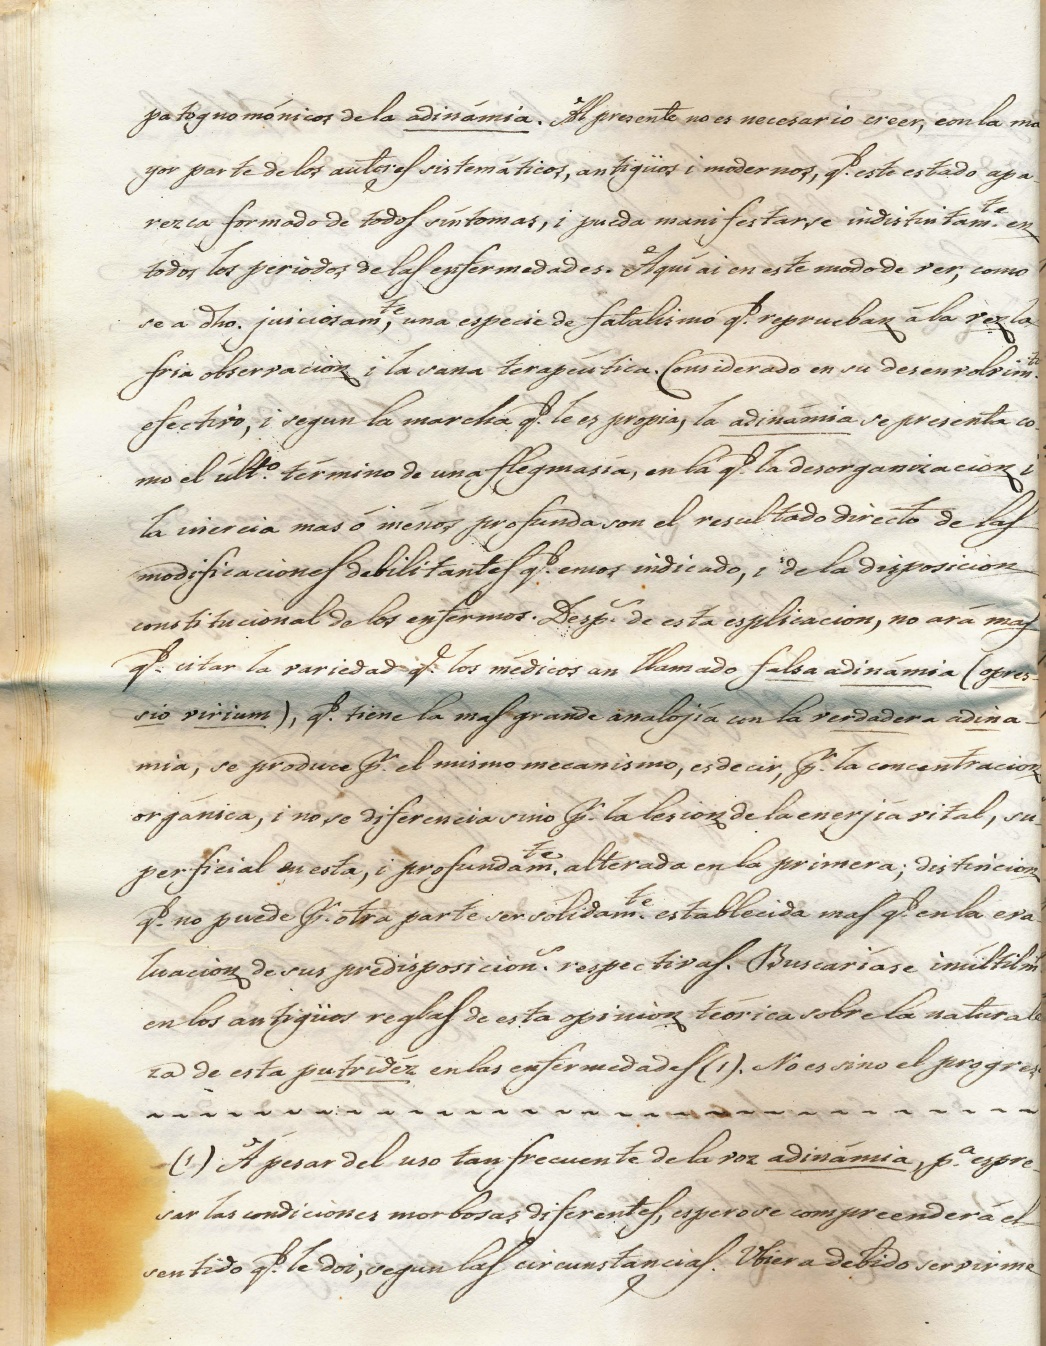 patognomónicos de la adinámia. Al presente no es necesario creer, con la ma
yor parte de los autores sistemáticos, antigüos i modernos, q.e este estado apa-
rezca formado de todos síntomas, i pueda manifestarse indistintam.te en
todos los periodos de las enfermedades. Aquí ai en este modo de ver, como
se a dho. juiciosam.te, una especie de fatalismo q.e reprueban á la vez la
fria observacion i la sana terapéutica. Considerado en su desenvolvim.to
efectivo, i segun la marcha q.e le es propia, la adinámia se presenta co-
mo el últ.o término de una flegmasía, en la q.e la desorganizacion i
la inercia mas ó ménos profunda son el resultado directo de las
modificaciones debilitantes q.e emos indicado, i de la disposicion
constitucional de los enfermos. Desp.s de esta esplicacion, no ará mas
q.e citar la variedad q.e los médicos an llamado falsa adinámia (opres-
sio virium), q.e tiene la mas grande analojía con la verdadera adina-
mia, se produce p.r el mismo mecanismo, es decir, p.r la concentracion
orgánica, i no se diferencia sino p.r la lesion de la enerjía vital, su-
perficial en esta, i profundam.te alterada en la primera; distincion
q.e no puede p.r otra parte ser sólidam.te establecida mas q.e en la eva
luacion de sus predisposicion.s respectivas. Buscaríase inútilm.te
en los antigüos reglas de esta opinion teórica sobre la naturale
za de esta putridéz en las enfermedades (1). No es sino el progre
(1) Á pesar del uso tan frecuente de la voz adinámia, p.a espre-
sar las condiciones morbosas diferentes, espero se compreenderá el
sentido q.e le doi, segun las circunstancias. Ubiera debido servirme